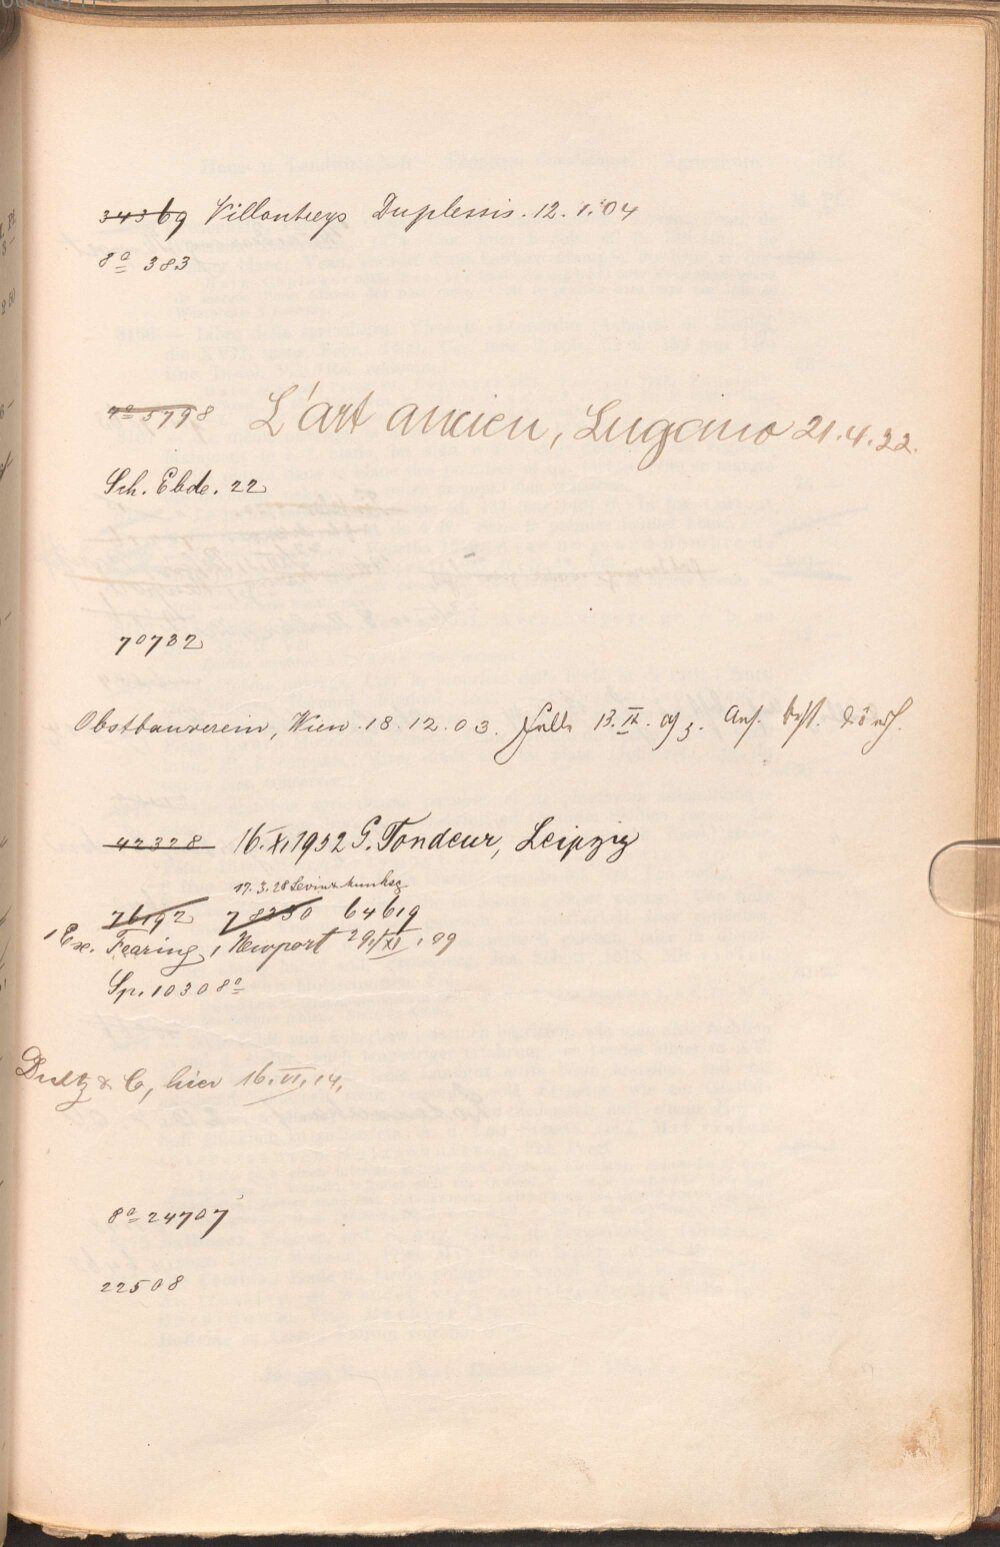 34369 Villontreys Duplessis. 12. 1. 04
8º 383
4º 5798 L'art ancien, Lugano 21.4.22.
Sch. Ebde. 22
70732
Obstbauverein, Wien. 18. 12. 03. fehlt 13. IX. 09
42328 16. XI. 1932 G. Tondeur, Leipzig
17. 3. 28
76192 78250 64619
1 Ex. Fearing, Newport 29/XI. 09
Sp. 10308º
Dultz & C, hier 16. VI. 14.
8º 24707
22508